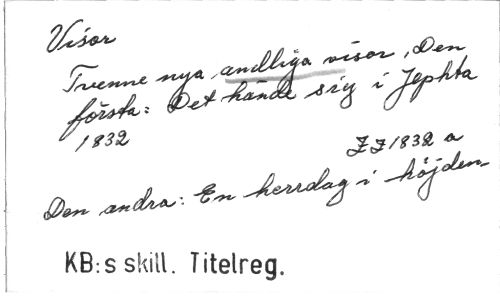 Visor
Tvenne nya andliga visor, Den
första: Det hände sig i Jephta
1832
ZZ 1832 a
Den andra: En herrdag i höjden
KB:s skill. Titelreg.